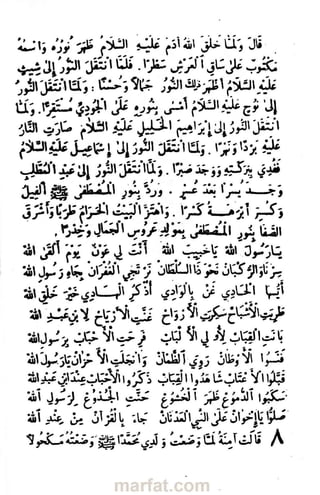 قَالَ وَلَمَّا خَلَقَ اللهُ اٰدَمَ عَلَيْهِ السَّلَامُ ظَهَرَ نُوْرُهُ وَاسْمُهُ
مَكْتُوْبٌ عَلٰى سَاقِ الْعَرْشِ سَطْرًا. فَلَمَّا انْتَقَلَ النُّوْرُ اِلٰى شِيْثٍ
عَلَيْهِ السَّلَامُ اَظْهَرَ ذٰلِكَ النُّوْرُ جَمَالًا وَّحُسْنًا: وَلَمَّا انْتَقَلَ النُّوْرُ
اِلٰى نُوْحٍ عَلَيْهِ السَّلَامُ اَمْسٰى بِنُوْرِهِ عَلَى الْجُوْدِيِّ مُسْتَقِرًّا. وَلَمَّا
انْتَقَلَ النُّوْرُ اِلٰى اِبْرَاهِيْمَ الْخَلِيْلِ عَلَيْهِ السَّلَامُ صَارَتِ النَّارُ
عَلَيْهِ بَرْدًا وَّنَهْرًا. وَلَمَّا انْتَقَلَ النُّوْرُ اِلٰى اِسْمَاعِيْلَ عَلَيْهِ السَّلَامُ
فُدِيَ بِبَرَكَتِهِ وَوَجَدَ صَبْرًا. وَلَمَّا انْتَقَلَ النُّوْرُ اِلٰى عَبْدِ الْمُطَّلِبِ
وَجَدَ يُسْرًا بَعْدَ عُسْرٍ. وَرُدَّ بِنُوْرِ الْمُصْطَفٰى ﷺ الْفِيْلُ
وَكُسِرَ اَبْرَهَةُ كَسْرًا. وَاهْتَزَّ الْبَيْتُ الْحَرَامُ طَرَبًا وَّاَشْرَقَ
الصَّفَا بِنُوْرِ الْمُصْطَفٰى بِمَوْلِدِ عَرُوْسِ الْجَمَالِ
يَارَسُوْلَ اللهِ يَاحَبِيْبَ اللهِ اَنْتَ لِيْ عَوْنٌ يَوْمَ اَلْقَى اللهَ
سِرْ نَحْوَ ذَا السُّلْطَانِ تَرْتَجِي الْغُفْرَانَ بِجَاهِ رَسُوْلِ اللهِ
اَيُّهَا الْحَادِيْ غَنِّ بِالْوَادِيْ اُذْكُرِ الْهَادِيْ خَيْرَ خَلْقِ اللهِ
طَرِبَتِ الْاَشْبَاحُ سَكِرَتِ الْاَرْوَاحُ غَنَّتِ الْاَرْيَاحُ لِابْنِ عَبْدِ اللهِ
بَانَتِ الْقِبَابُ لِاُولِي الْاَلْبَابِ فَرِحَتِ الْاَحْبَابُ بِرَسُوْلِ اللهِ
الْاَوْطَانَ رَوِيَ الظَّمْاٰنُ وَانْجَلَتِ الْاَحْزَانُ بِرَسُوْلِ اللهِ
قَبَّلُوا الْاَعْتَابَ شَاهَدُوا الْقِبَابَ ذَكَرُوا الْاَحْبَابَ عِنْدَ ابْنِ عَبْدِ اللهِ
سَكَبُوا الدُّمُوْعَ ظَهَرَ الْخُشُوْعُ حَنَّتِ الْجُذُوْعُ لِرَسُوْلِ اللهِ
صَلُّوْا يَااِخْوَانُ عَلَى النَّبِي الْعَدْنَانِ جَاءَ بِالْقُرْاٰنِ مِنْ عِنْدِ اللهِ
٨ قَالَتْ اٰمِنَةُ لَمَّا وَضَعْتُ وَلَدِيْ مُحَمَّدًا ﷺ وَضَعْتُهُ مَكْحُوْلًا
marfat.com